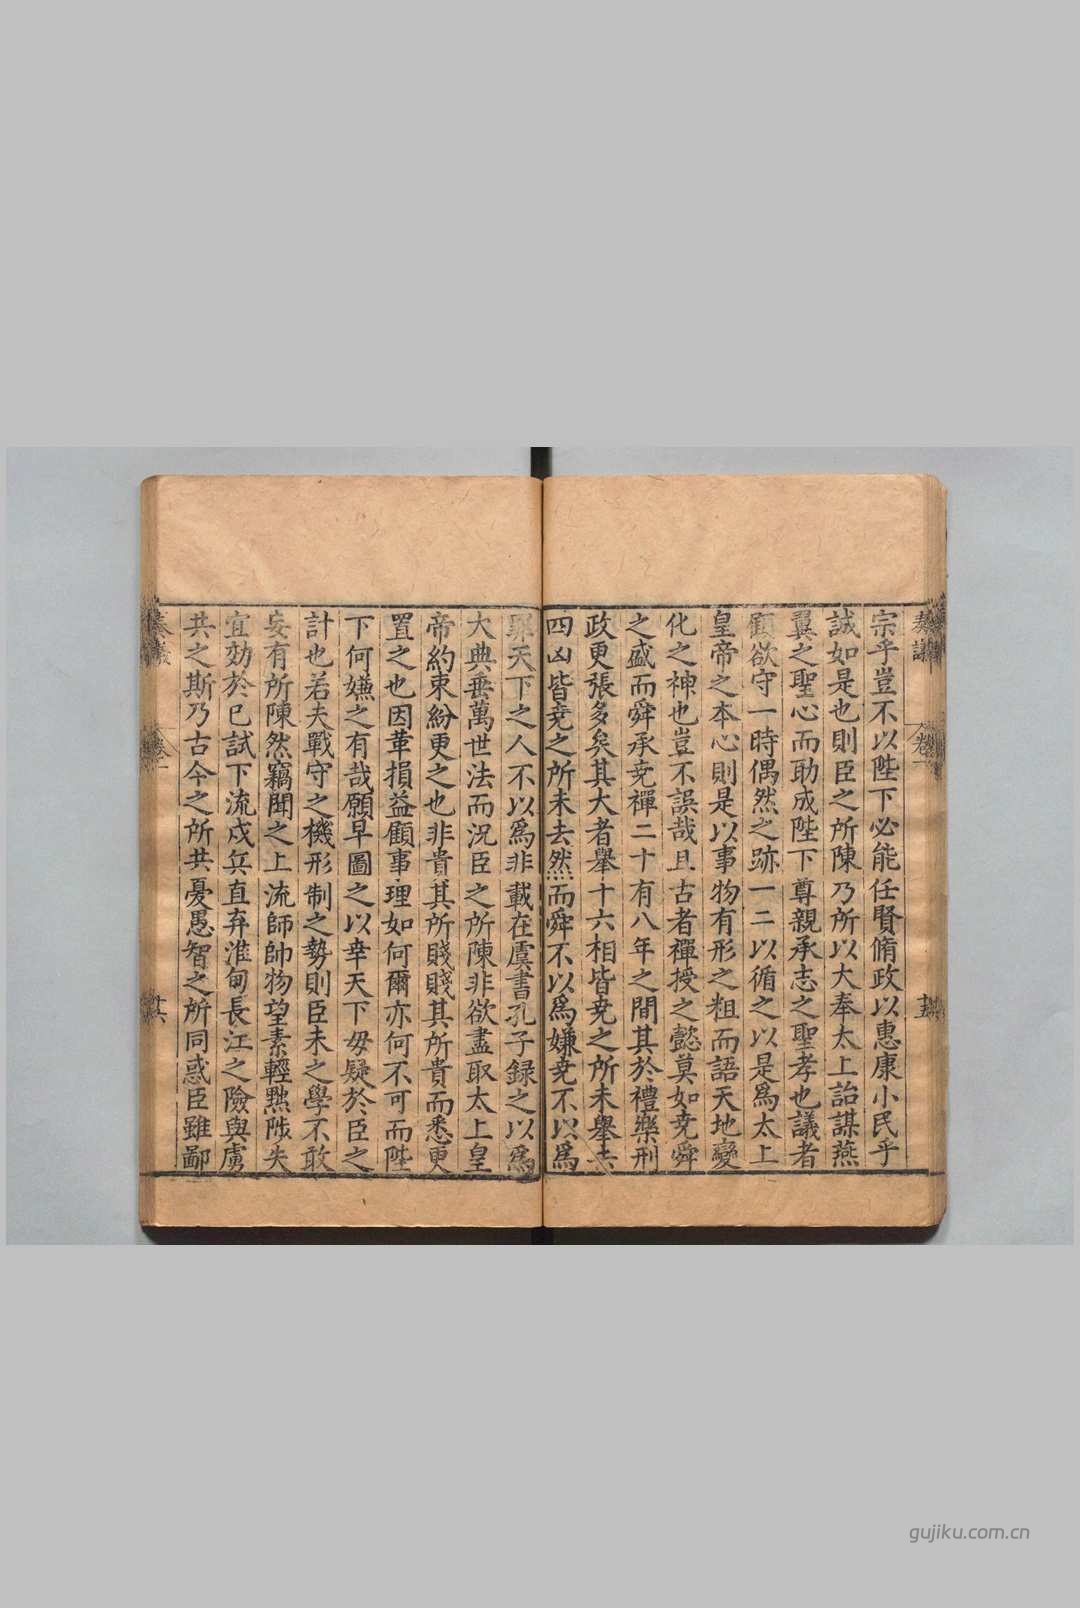 奏議
卷一
十五
宗乎豈不以陛下必能任賢脩政以惠康小民乎
誠如是也則臣之所陳乃所以大奉太上詒謀燕
翼之聖心而助成陛下尊親承志之聖孝也議者
顧欲守一時偶然之跡一二以循之以是爲太上
皇帝之本心則是以事物有形之粗而語天地變
化之神也豈不誤哉且古者禪授之懿莫如尭舜
之盛而舜承尭禪二十有八年之間其於禮樂刑
政更張多矣其大者舉十六相皆尭之所未舉去
四凶皆尭之所未去然而舜不以爲嫌尭不以爲
罪天下之人不以爲非載在虞書孔子録之以爲
大典垂萬世法而況臣之所陳非欲盡取太上皇
帝約束紛更之也非貴其所賤賤其所貴而悉更
置之也因革損益顧事理如何爾亦何不可而陛
下何嫌之有哉願早圖之以幸天下毋疑於臣之
計也若夫戰守之機形制之勢則臣未之學不敢
妄有所陳然竊聞之上流師帥物望素輕黠陟失
宜効於已試下流戍兵直弃淮甸長江之險與虜
共之斯乃古今之所共憂愚智之所同惑臣雖鄙
奏議
卷一
十六
gujiku.com.cn